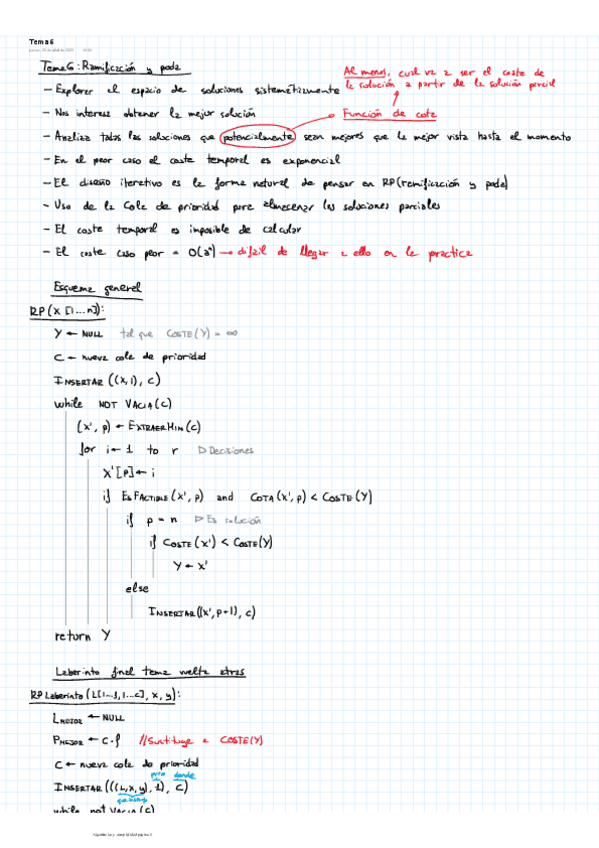 Tema 6
Tema 6: Ramificación y poda
Al menos, cual va a ser el coste de
la solución a partir de la solución parcial
- Explorar el espacio de soluciones sistemáticamente
- Nos interesa obtener la mejor solución
Función de cota
- Analiza todas las soluciones que potencialmente sean mejores que la mejor vista hasta el momento
- En el peor caso el coste temporal es exponencial
- El diseño iterativo es la forma natural de pensar en RP (ramificación y poda)
- Uso de la Cola de prioridad para almacenar las soluciones parciales
- El coste temporal es imposible de calcular
- El coste caso peor = O(aⁿ) → difícil de llegar a ello en la practica
Esquema general
RP(X[1...n]):
Y ← NULL tal que COSTE(Y) = ∞
C ← nueva cola de prioridad
INSERTAR((X,1), C)
while NOT VACIA(C)
(X', p) ← EXTRAERMIN(C)
for i ← 1 to r ▷ Decisiones
X'[p] ← i
if ESFACTIBLE(X', p) and COTA(X', p) < COSTE(Y)
if p = n ▷ Es solución
if COSTE(X') < COSTE(Y)
Y ← X'
else
INSERTAR((X', p+1), C)
return Y
Laberinto final tema vuelta atras
RP Laberinto(L[1...f, 1...c], x, y):
LMEJOR ← NULL
PMEJOR ← c·f //Sustituye a COSTE(Y)
C ← nueva cola de prioridad
donde
INSERTAR(((L,x,y), 1), C)
while not VACIA(C)